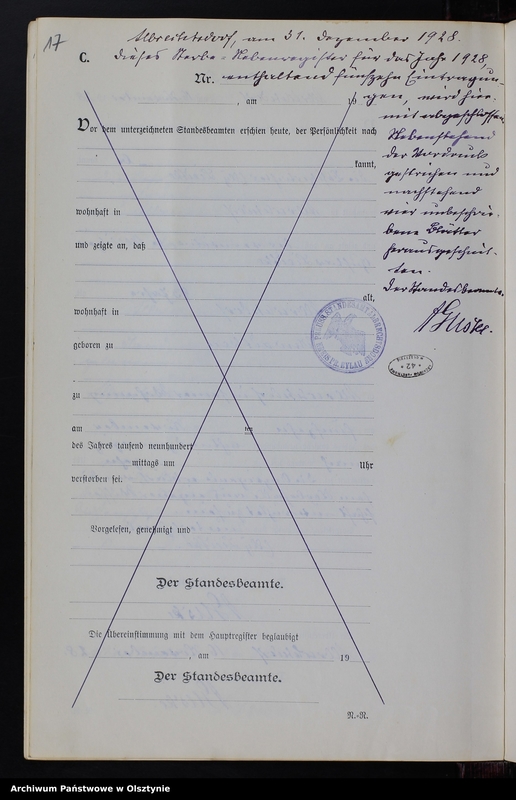 17
Albrechtsdorf, am 31. Dezember 1928.
C. Dieses Sterbe-Nebenregister für das Jahr 1928,
Nr. enthaltend fünfzehn Eintragun-
, am 19 gen, wird hier-
mit abgeschlossen.
Nebenstehend
der Vordruck
gestrichen und
nachstehend
vier unbeschrie-
bene Blätter
herausgeschnit-
ten.
Der Standesbeamte.
Vor dem unterzeichneten Standesbeamten erschien heute, der Persönlichkeit nach
kannt,
wohnhaft in
und zeigte an, daß
alt,
wohnhaft in
geboren zu
zu
am ten
des Jahres tausend neunhundert
mittags um Uhr
verstorben sei.
Vorgelesen, genehmigt und
Der Standesbeamte.
Die Übereinstimmung mit dem Hauptregister beglaubigt
, am 19
Der Standesbeamte.
N.-R.
Archiwum Państwowe w Olsztynie